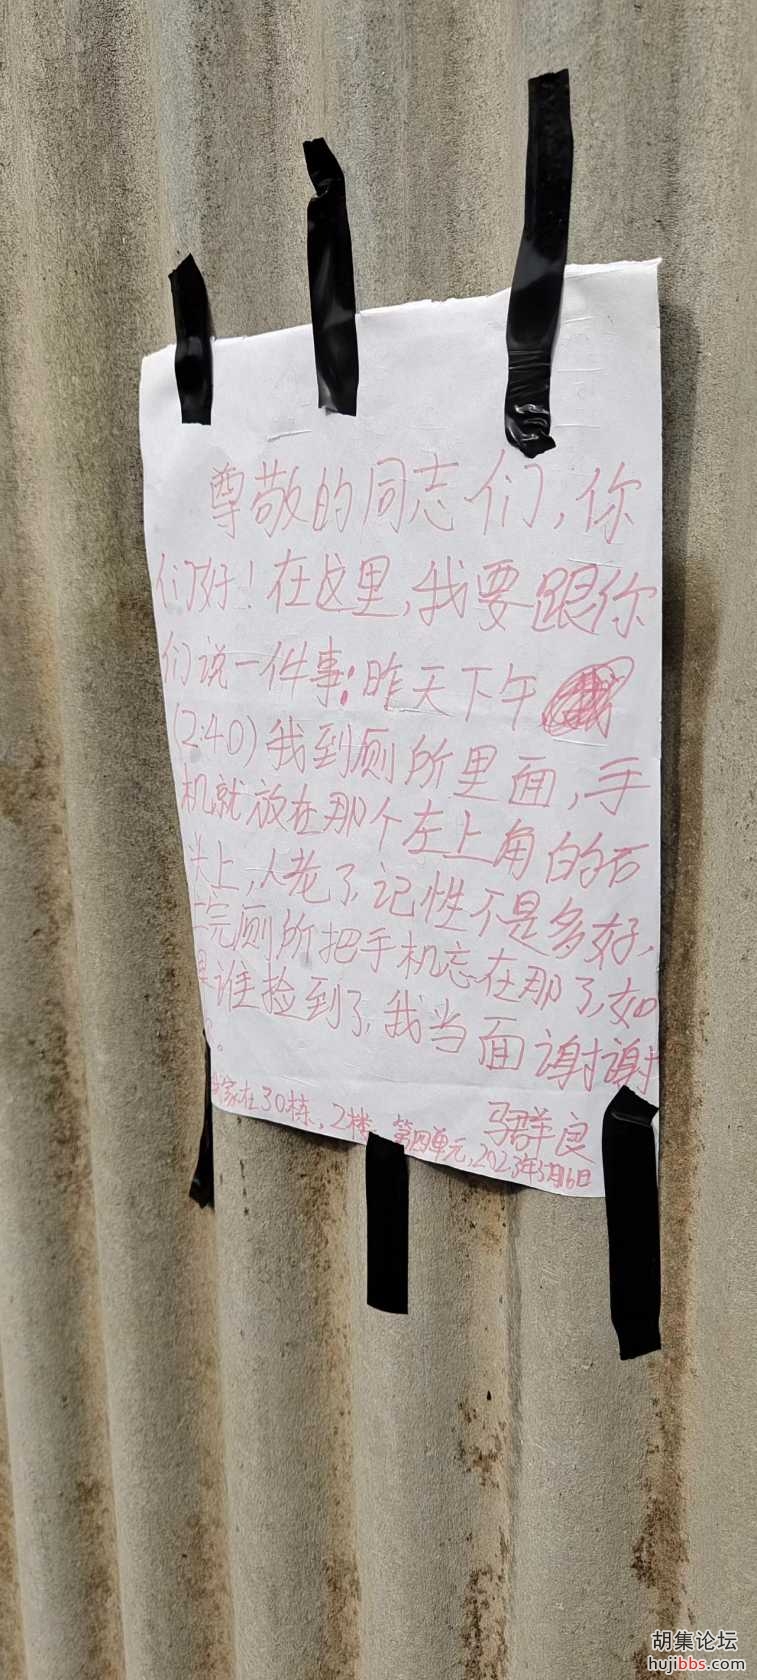 尊敬的同志们,你
们好!在这里,我要跟你
们说一件事:昨天下午
(2:40)我到厕所里面,手
机就放在那个左上角的石
头上,人老了,记性不是多好,
上完厕所把手机忘在那了,如
果谁捡到了,我当面谢谢
。
群良
我家在30栋,2楼,第四单元,2023年5月16日
胡集论坛
hujibbs.com